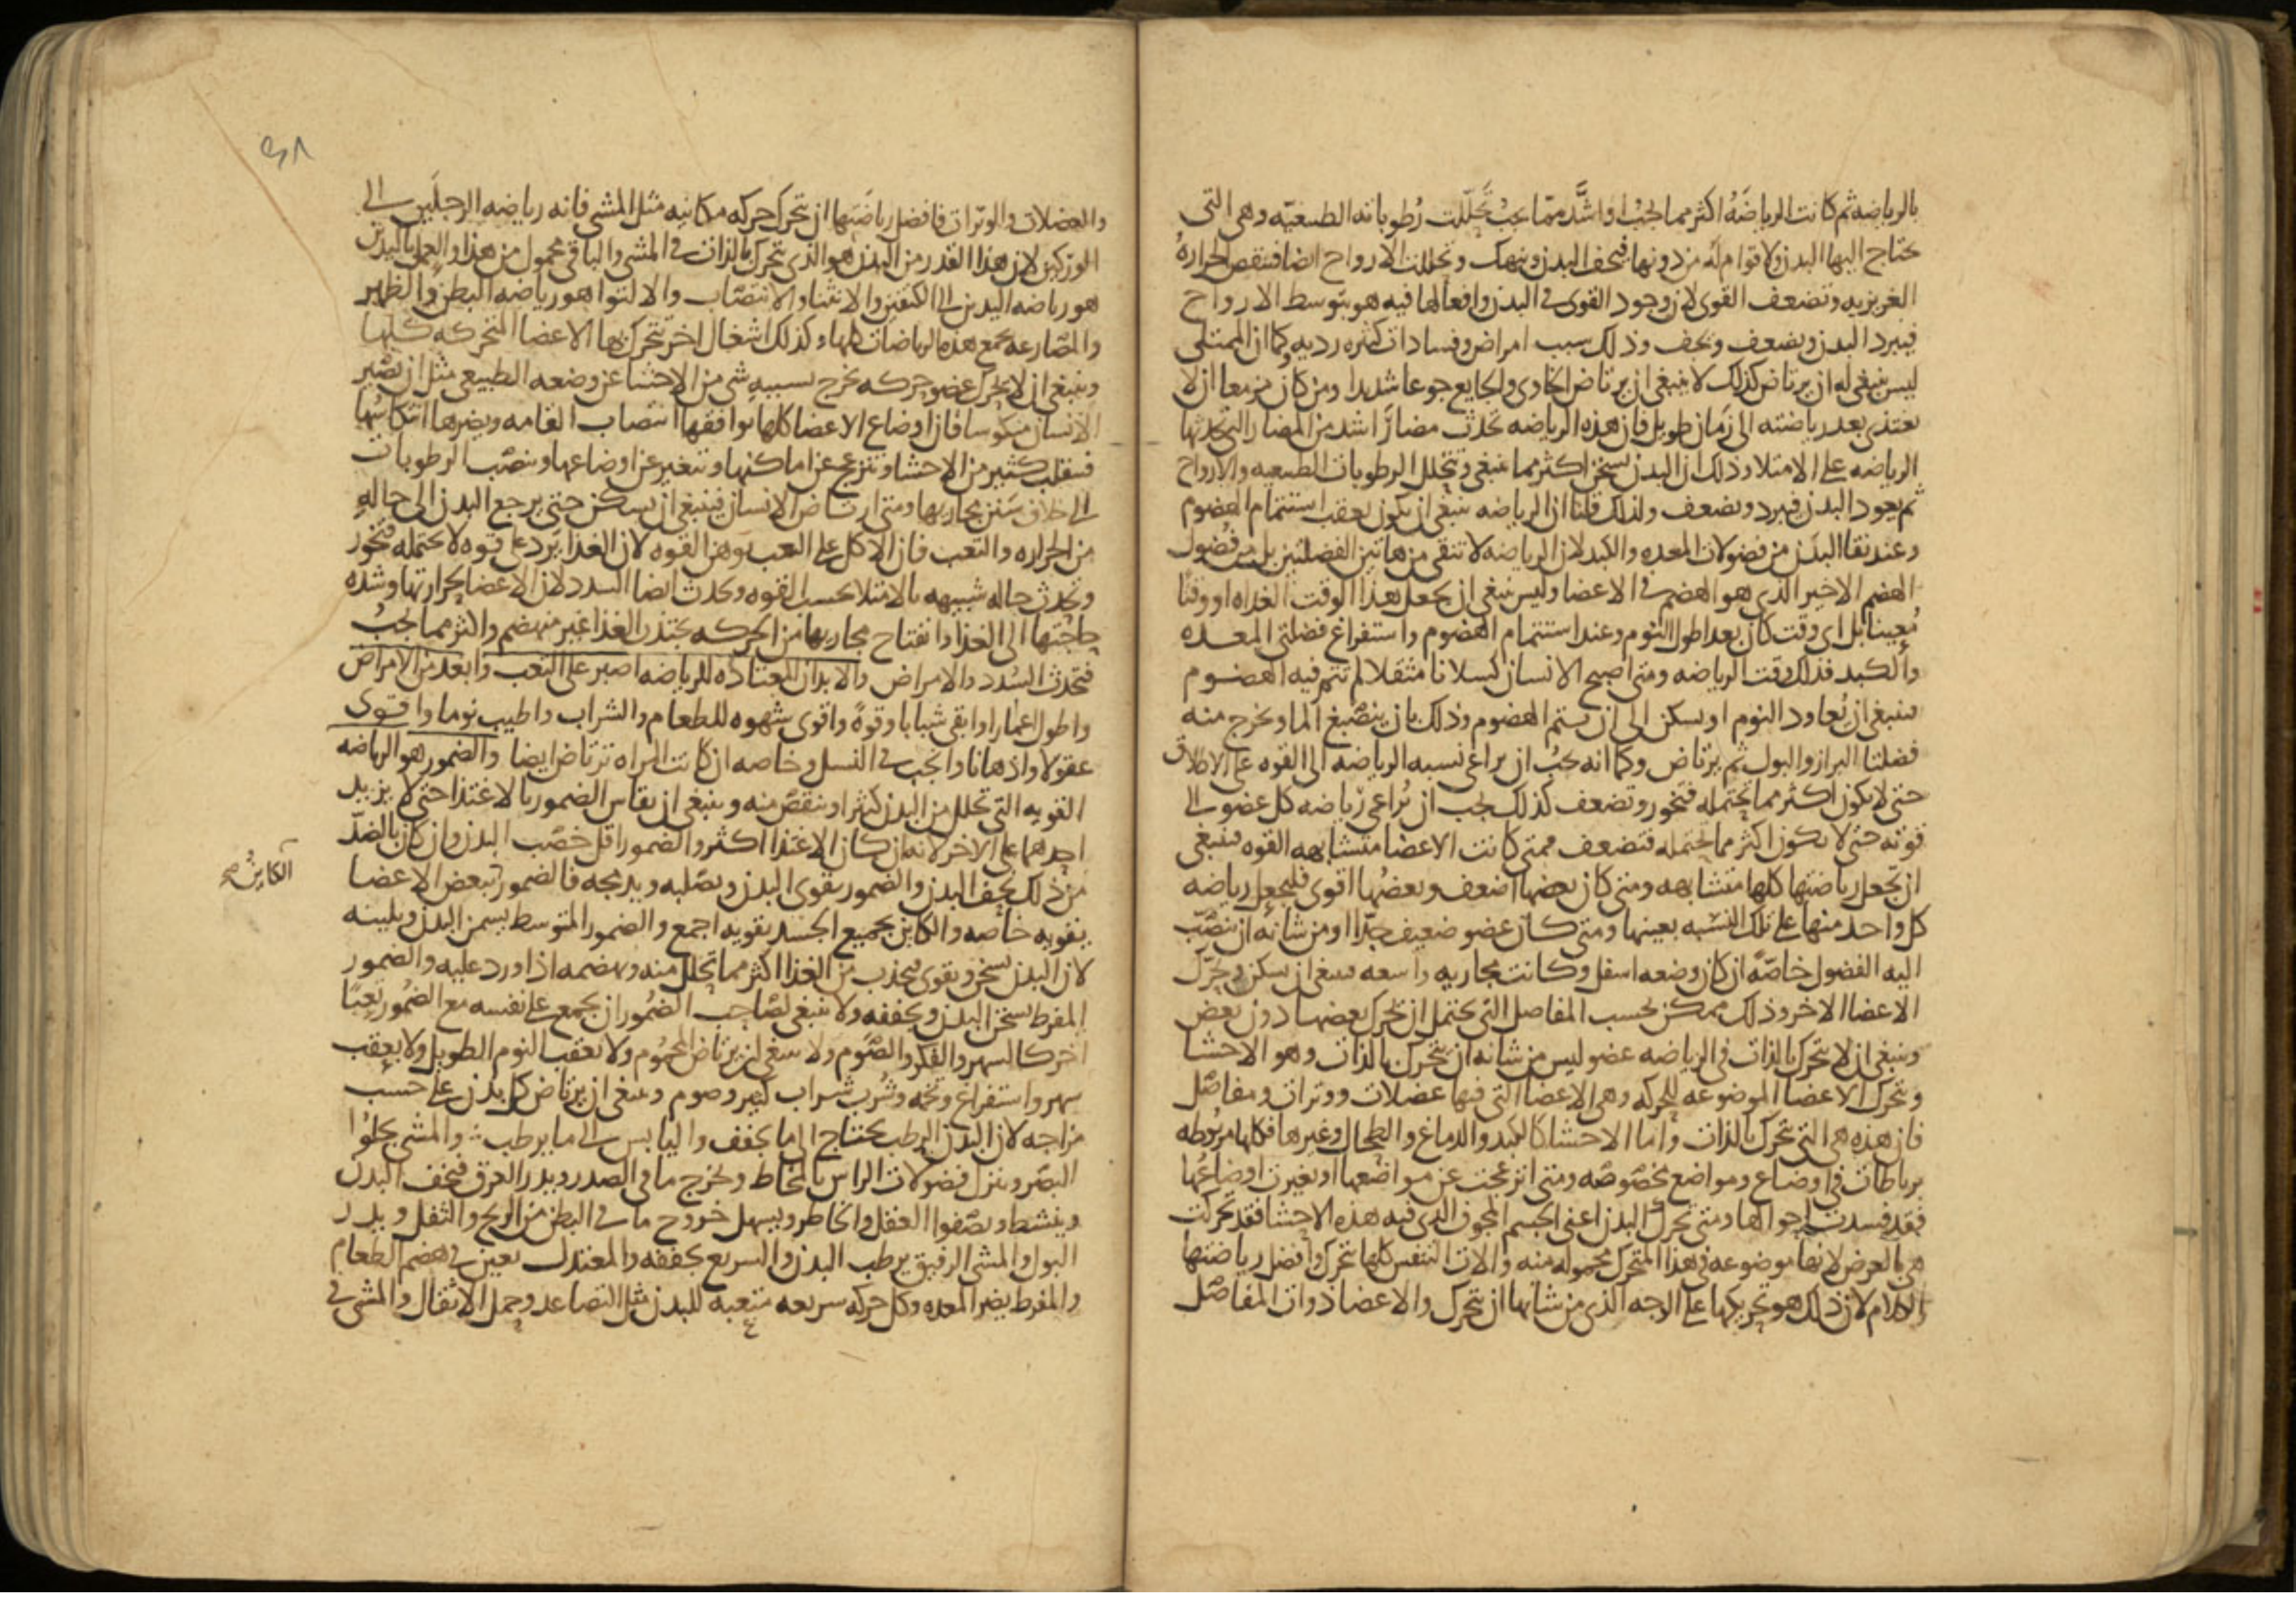 بالرياضه ثم كانت الرياضَهُ اكثر مما يجبُ او اشَّد ممّا يجبُ تحلّلت رُطوباته الطبيعيّه وهى التى
يحتاج اليها البدن ولا قوام لهُ من دونها فيجف البدن وينهك وتحللت الارواح ايضا فتنقص الحرارهُ
الغريزيه وتضعف القوى لان وجود القوى فى البدن وافعالها فيه هو بتوسط الارواح
فيبرد البدن ويضعف ويجف وذلك سبب امراض وفسادات كثيره رديه وكما ان الممتلى
ليس ينبغى له ان يرتاض كذلك لا ينبغى ان يرتاض الخاوى والجايع جوعا شديدا ومن كان مزمعا ان لا
يغتذى بعد رياضته الى زمان طويل فان هذه الرياضه تحدث مضارًا اشد من المضار التى تحدثها
الرياضه على الامتلا وذلك ان البدن يسخن اكثر مما ينبغى وتتحلل الرطوبات الطبيعيه والارواح
ثم يعود البدن فيبرد ويضعف ولذلك قلنا ان الرياضه ينبغى ان يكون بعقب استتمام الهضوم
وعند نقا البدن من فضولات المعده والكبد لان الرياضه لا تنقى من هاتين الفضلتين بل من فضول
الهضم الاخير الذى هو الهضم فى الاعضا وليس ينبغى ان يجعل هذا الوقت الغداه او وقتًا
مُعينا بل اى وقت كان بعد اطول النوم وعند استتمام الهضوم واستفراغ فضلتى المعده
والكبد فذلك وقت الرياضه ومتى اصبح الانسان كسلانا مثقلا لم تتم فيه الهضوم
فينبغى ان يُعاود النوم او يسكن الى ان يستم الهضوم وذلك بان ينصبغ الما ويخرج منه
فضلتا البراز والبول ثم يرتاض وكما انه يجبُ ان يراعى نسبه الرياضه الى القوه على الاطلاق
حتى لا يكون اكثر مما تحتمله فتخور وتضعف كذلك يجب ان يُراعى رياضه كل عضو الى
قوته حتى لا يكون اكثر مما يحتمله فتضعف فمتى كانت الاعضا متشابهه القوه فينبغى
ان تجعل رياضتها كلها متشابهه ومتى كان بعضها اضعف وبعضُها اقوى فليجعل رياضه
كل واحد منها على تلك النسبه بعينها ومتى كان عضو ضعيف جدًا او من شانه ان تنصّب
اليه الفضول خاصّةً ان كان وضعه اسفل وكانت مجاريه واسعه فينبغى ان يسكن ويحرّك
الاعضا الاخر وذلك ممكن بحسب المفاصل التى يحتمل ان يحرك بعضها دون بعض
وينبغى ان لا يتحرك بالذات فى الرياضه عضو ليس من شانه ان يتحرك بالذات وهو الاحشا
وتحرك الاعضا الموضوعه للحركه وهى الاعضا التى فيها عضلات ووترات ومفاصّل
فان هذه هى التى تتحرك بالذات واما الاحشا كالكبد والدماغ والطحال وغيرها فكلها مربُوطه
برباطات فى اوضاع ومواضع مخصُوصّه ومتى انزعجت عن مواضعها او تغيرت اوضاعُها
فقد فسدت احوالها ومتى تحرك البدن اعنى الجسم المجوف الذى فيه هذه الاحشا فقد تحركت
هى بالعرض لانها موضوعه فى هذا المتحرك محموله منه والات التنفس كلها تتحرك وافضل رياضتها
الكلام لان ذلك هو تحريكها على الوجه الذى من شانها ان تتحرك والاعضا ذوات المفاصّل
والعضلات والوترات فافضل رياضتها ان تتحرك حركه مكانيه مثل المشى فانه رياضه الرجلَين الى
الوركين لان هذا القدر من البدن هو الذى يتحرك بالذات فى المشى والباقى محمول من هذا والعمل باليدين
هو رياضه اليدين الى الكتفين والانثنا والانتصَاب والالتوا هو رياضه البطن والظهر
والمصّارعه تجمع هذه الرياضات كلها وكذلك اشغال اخر تتحرك بها الاعضا المتحركه كلها
وينبغى ان لا يحرك عضو حركه يخرج بسببهِ شى من الاحشا عن وضعه الطبيعى مثل ان يصّير
الانسان منكوسا فان اوضاع الاعضا كلها توافقها انتصاب القامه ويضرها انتكاسُها
فينقلب كثير من الاحشا وتنزعج عن اماكنها وتتغير عن اوضاعها وينصّب الرطوبات
الى خلاف سَنن مجاريها ومتى ارتاض الانسان فينبغى ان يسكن حتى يرجع البدن الى حاله
من الحراره والتعب فان الاكل على التعب يوهن القوه لان الغذا يرد على قوه لا تحتمله فتخور
وتحدث حاله شبيهه بالامتلا بحسب القوه وتحدث ايضا السدد لان الاعضا بحرارتها وشده
حاجتها الى الغذا وانفتاح مجاريها من الحركه تجتذب الغذا غير منهضم واكثر مما يجبُ
فتحدث السُدد والامراض والابدان المعتاده للرياضه اصبر على التعب وابعد من الامراض
واطول اعمارا وابقى شبابا وقوةً واقوى شهوه للطعام والشراب واطيب نوما واقوى
عقولا واذهانا وانجب فى النسل وخاصه ان كانت المراه ترتاض ايضا والضمور هو الرياضه
القويه التى تحلل من البدن كثيرا وينقصّ منه وينبغى ان يقاس الضمور بالاغتذا حتى لا يزيد
احدهما على الاخر لانه ان كان الاغتذا اكثر والضمور اقل خصّب البدن وان كان بالضدّ
من ذلك نحف البدن والضمور يقوى البدن ويصّلبه ويدمجه فالضمور ببعض الاعضا
يقويه خاصّه والكاين بجميع الجسد يقويه اجمع والضمور المتوسط يسمن البدن ويلينه
لان البدن يسخن ويقوى فيجذب من الغذا اكثر مما تحلل منه ويهضمه اذا ورد عليه والضمور
المفرط يسخن البدن ويجففه ولا ينبغى لصّاحب الضُمور ان يجمع على نفسه مع الضمُور تعبًا
اخر كالسهر والفكر والصّوم ولا ينبغى ان يرتاض المحموم ولا بعقب النوم الطويل ولا بعقب
سهر واستفراغ وتخمه وشُرب شراب كثير وصوم وينبغى ان يرتاض كل بدن على حسب
مزاجه لان البدن الرطب يحتاج الى ما يجفف واليابس الى ما يرطب والمشى يجلوا
البصّر وينزل فضولات الراس بالمخاط ويخرج ما فى الصدر ويدر العرق فيخف البدن
وينشط ويصّفوا العقل والخاطر ويسهل خروج ما فى البطن من الريح والثفل ويدر
البول والمشى الرفيق يرطب البدن والسريع يجففه والمعتدل يعين فى هضم الطعام
والمفرط يضر المعده وكل حركه سريعه متعبه للبدن مثل التصاعد وحمل الاثقال والمشى فى
الكاين